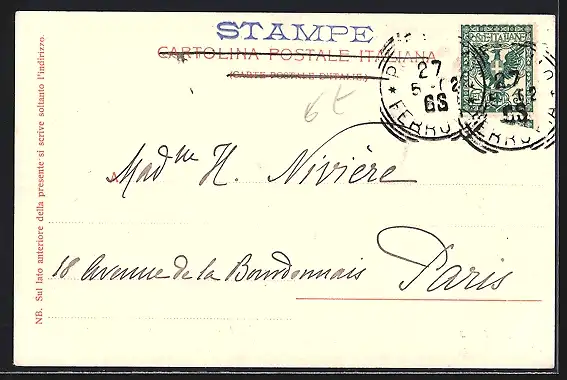 STAMPE
CARTOLINA POSTALE ITALIANA
(CARTE POSTALE D'ITALIE)
POSTE ITALIANE
27
5 02
GS
27
5 02
GS
NB. Sul lato anteriore della presente si scrive soltanto l'indirizzo.
Mad^me H. Nivière
18 Avenue de la Bourdonnais Paris